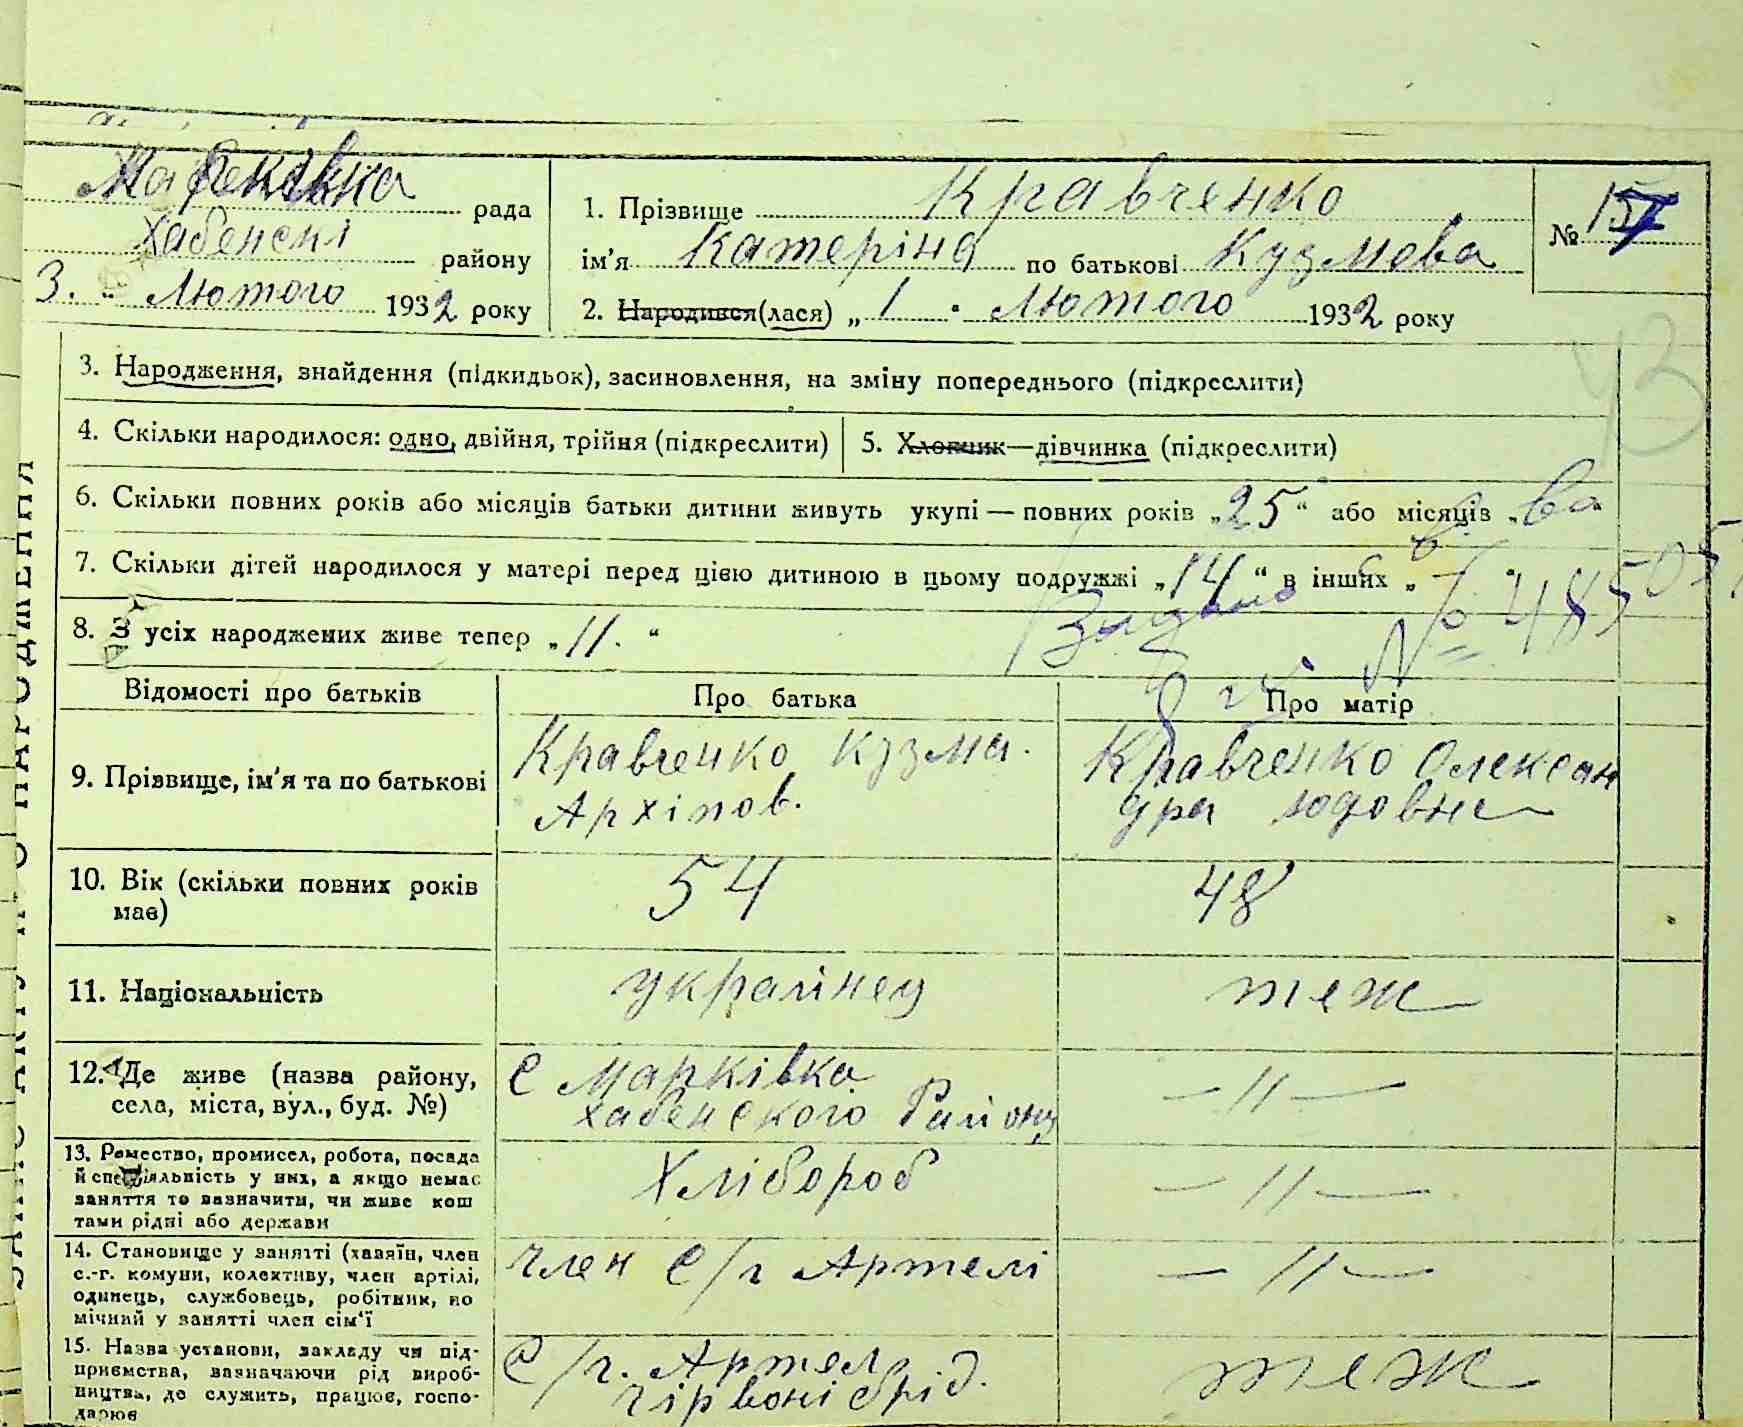 рада
Хабенскі району
3. " Лютого 1932 року
1. Прізвище Кравченко
ім'я Катеріна по батькові Кузмова
2. Народився(лася) „ 1 " Лютого 1932 року
№ 15
3. Народження, знайдення (підкидьок), засиновлення, на зміну попереднього (підкреслити)
4. Скільки народилося: одно, двійня, трійня (підкреслити)
5. Хлопчик—дівчинка (підкреслити)
6. Скільки повних років або місяців батьки дитини живуть укупі — повних років „25“ або місяців „
7. Скільки дітей народилося у матері перед цією дитиною в цьому подружжі „14“ в інших „ — "
8. З усіх народжених живе тепер „11. “
43
Відомості про батьків
Про батька
Про матір
9. Прізвище, ім'я та по батькові
Кравченко Кузма.
Архіпов.
Кравченко Олексан
дра
10. Вік (скільки повних років
має)
54
48
11. Національність
украйнец
теж
12. Де живе (назва району,
села, міста, вул., буд. №)
С Марківка
Хабенского Району
— 〃 —
13. Ремество, промисел, робота, посада
й спеціяльність у них, а якщо немає
заняття то вазначити, чи живе кош
тами рідні або держави
Хлібороб
— 〃 —
14. Становище у занятті (хазяїн, член
с.-г. комуни, колективу, член артілі,
одинець, службовець, робітник, по
мічний у занятті член сім'ї
член С/г Артелі
— 〃 —
15. Назва установи, закладу чи під-
приємства, вазначаючи рід вироб-
ництва, де служить, працює, госпо-
дарює
С/г. Артел
теж